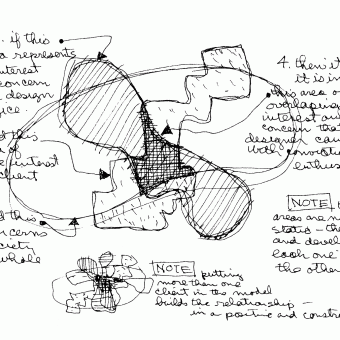 . if this
a represents
nterest
concern
design
ice.
d this
a of
e interest
client
d this
ncerns
ciety
whole
4. then it
it is in
this area of
overlapping
interest and
concern that
designer can
with convictio
enthus
NOTE
areas are n
static - the
and devel
each one
the other
NOTE putting
more than one
client in the model
builds the relationship -
in a positive and constru